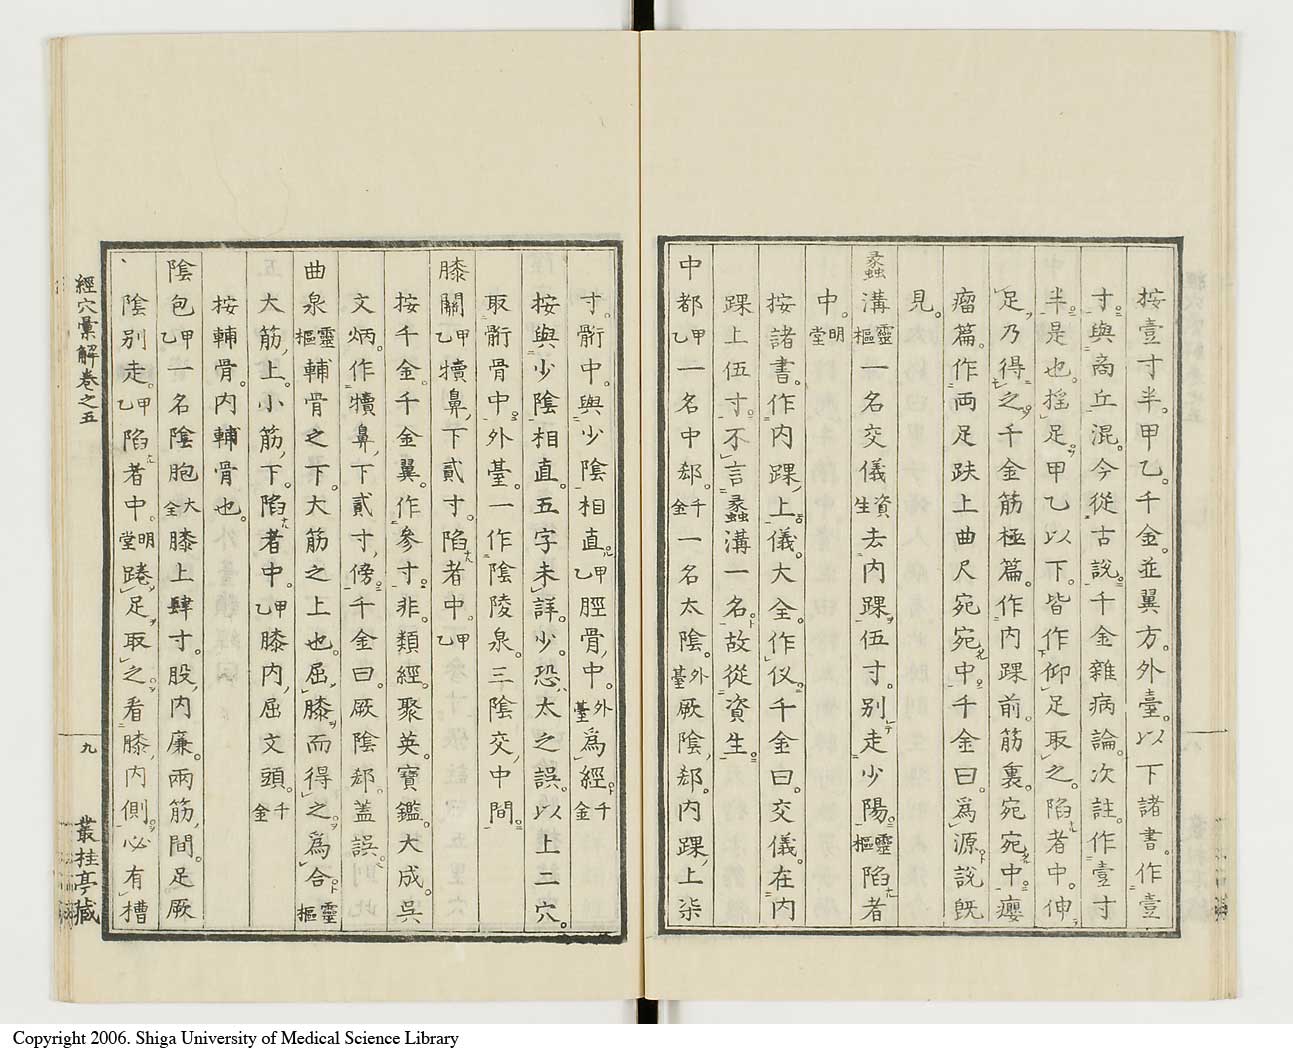 按壹寸半。甲乙。千金。並翼方。外臺。以下諸書。作壹
寸。與商丘混。今從古說。千金雜病論。次註。作壹寸
半。是也。搖足。甲乙以下。皆作仰足取之。陷者中。伸
足。乃得之。千金筋極篇。作內踝前。筋裏。宛宛中。癭
瘤篇。作兩足趺上曲尺宛宛中。千金曰。為源。說既
見。
蠡溝靈樞一名交儀資生去內踝伍寸。別走少陽。靈樞陷者
中。明堂
按諸書。作內踝上。儀。大全。作仪。千金曰。交儀。在內
踝上伍寸。不言蠡溝一名。故從資生。
中都甲乙一名中郄。千金一名太陰。外臺厥陰郄。內踝上柒
寸。䯒中。與少陰相直。甲乙脛骨中。外臺為經。千金
按與少陰相直。五字未詳。少。恐太之誤。以上二穴。
取䯒骨中。外臺。一作陰陵泉。三陰交中間。
膝關甲乙犢鼻下貳寸。陷者中。甲乙
按千金。千金翼。作參寸。非。類經。聚英。寶鑑。大成。吳
文炳。作犢鼻下貳寸傍。千金曰。厥陰郄。蓋誤。
曲泉靈樞輔骨之下。大筋之上也。屈膝而得之。為合。靈樞
大筋上。小筋下。陷者中。甲乙膝內屈文頭。千金
按輔骨。內輔骨也。
陰包甲乙一名陰胞大全膝上肆寸。股內廉。兩筋間。足厥
陰別走。甲乙陷者中。明堂踡足取之。看膝內側。必有槽
經穴彙解卷之五
九
叢桂亭藏
Copyright 2006. Shiga University of Medical Science Library